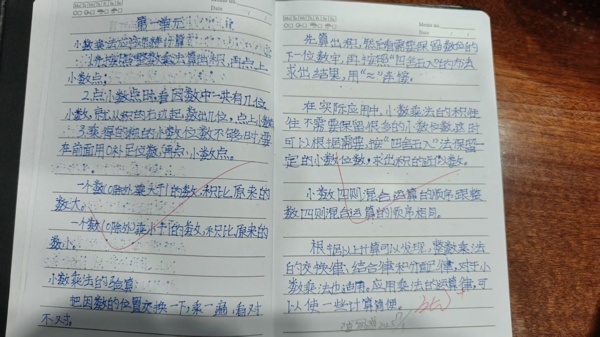 第一单元
小数乘法应该怎样计算
1.先按照整数乘法算出积,再点上
小数点;
2.点小数点时,看因数中一共有几位
小数,就从积的右边起数出几位,点上小数点
3.乘得的积的小数位数不够时,要
在前面用0补足位数,再点小数点。
一个数(0除外)乘大于1的数,积比原来的
数大。
一个数(0除外)乘小于1的数,积比原来的
数小。
小数乘法的验算
把因数的位置交换一下,乘一遍,看对
不对.
Date
先算出积,然后看需要保留数位的
下一位数字,再按照"四舍五入"法的方法
求出结果,用"≈"连接。
在实际应用中,小数乘法的积往
往不需要保留很多的小数位数,这时
可以根据需要,按"四舍五入"法保留一
定的小数位数,求出积的近似数。
小数四则混合运算的顺序跟整
数四则混合运算的顺序相同。
根据以上计算可以发现,整数乘法
的交换律、结合律和分配律,对于小
数乘法也适用,应用乘法的运算律,可
以使一些计算简便。